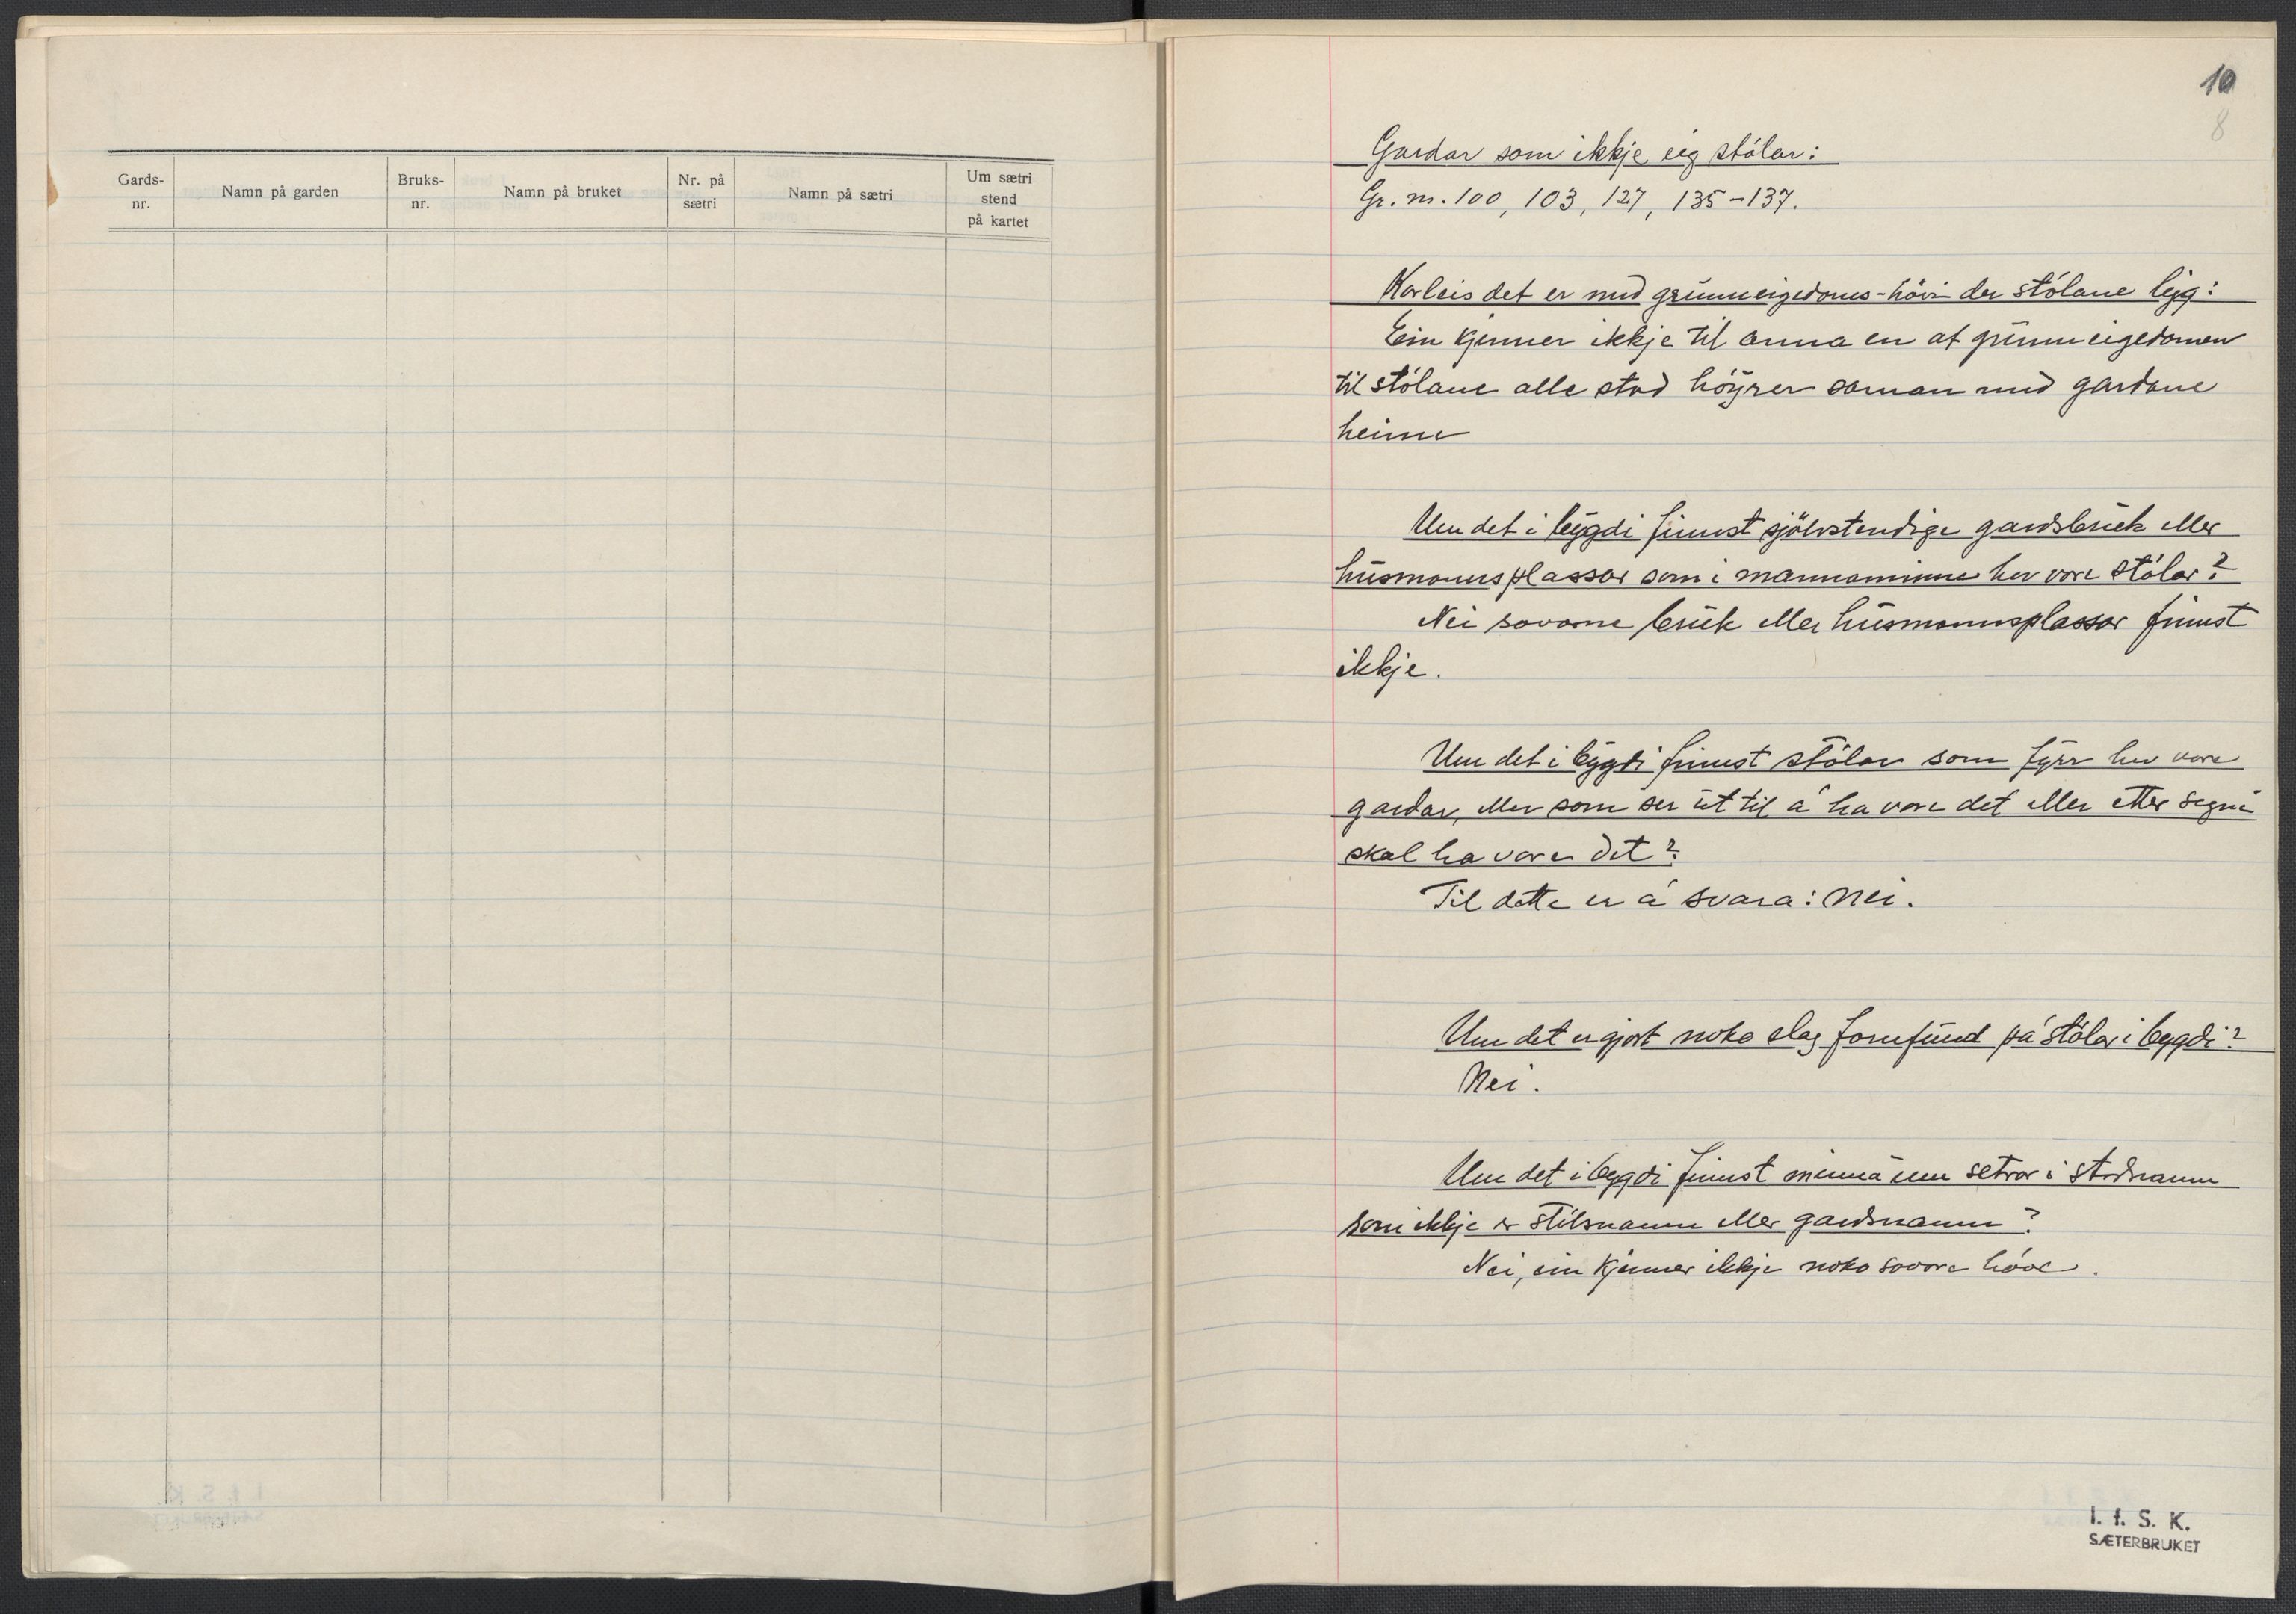 Gards-
nr.
Namn på garden
Bruks-
nr.
Namn på bruket
Nr. på
sætri
Namn på sætri
Um sætri
stend
på kartet
10
8
Gardar som ikkje eig stölar:
Gr. nr. 100, 103, 127, 135-137.
Korleis det er med grunneigedoms-hövi der stölane ligg:
Ein kjenner ikkje til anna en at grunneigedomen
til stölane alle stad höyrer saman med gardane
heime
Um det i bygdi finnst sjölvstendige gardsbruk eller
husmannsplassar som i mannaminne hev vore stölar?
Nei sovorne bruk eller husmannsplassar finnst
ikkje.
Um det i bygdi finnst stölar som fyrr hev vore
gardar, eller som ser ut til å ha vore det eller etter segni
skal ha vore det?
Til dette er å svara: Nei.
Um det er gjort noko slag fornfund på stölar i bygdi?
Nei.
Um det i bygdi finnst minne um setrar i stadnamn
som ikkje er stölsnamn eller gardsnamn?
Nei, ein kjenner ikkje noko sovore höve.
I. f. S. K.
SÆTERBRUKET